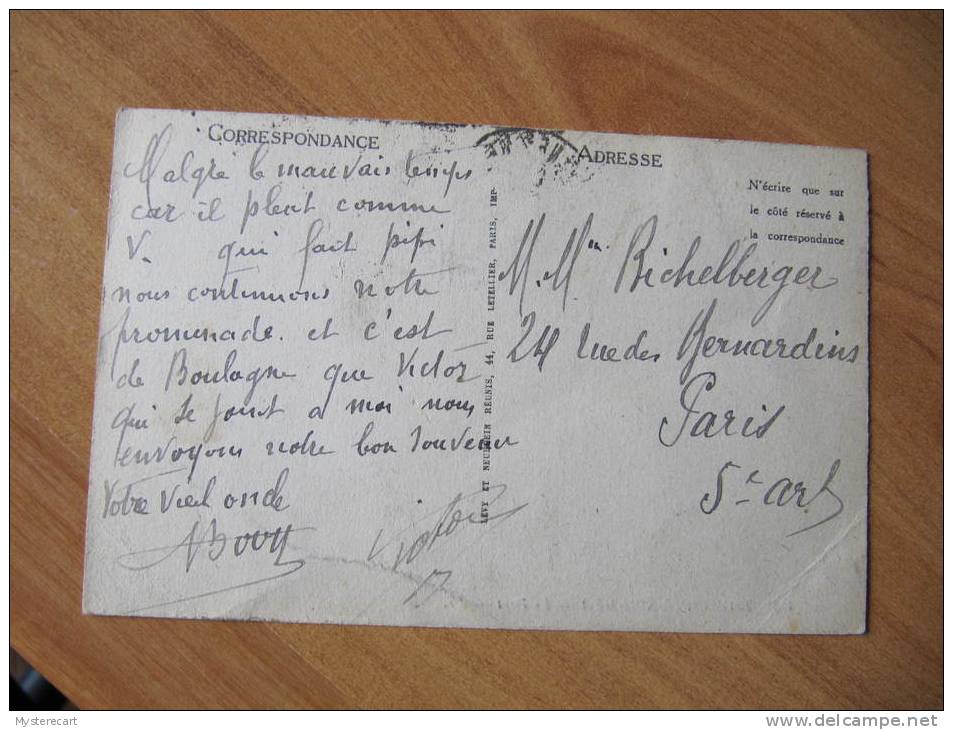 CORRESPONDANCE
Malgré le mauvais temps
car il pleut comme
V. qui fait pipi
nous continuons notre
promenade. et c'est
de Boulogne que Victor
qui se joint a moi nous
envoyons notre bon souvenir
Votre vieil oncle
Victor
LEVY ET NEURDEIN RÉUNIS, 44, RUE LETELLIER, PARIS, IMP.
ADRESSE
N'écrire que sur
le côté réservé à
la correspondance
M. Mme Bichelberger
24 rue des Bernardins
Paris
5e arr
Mysterecart
www.delcampe.net